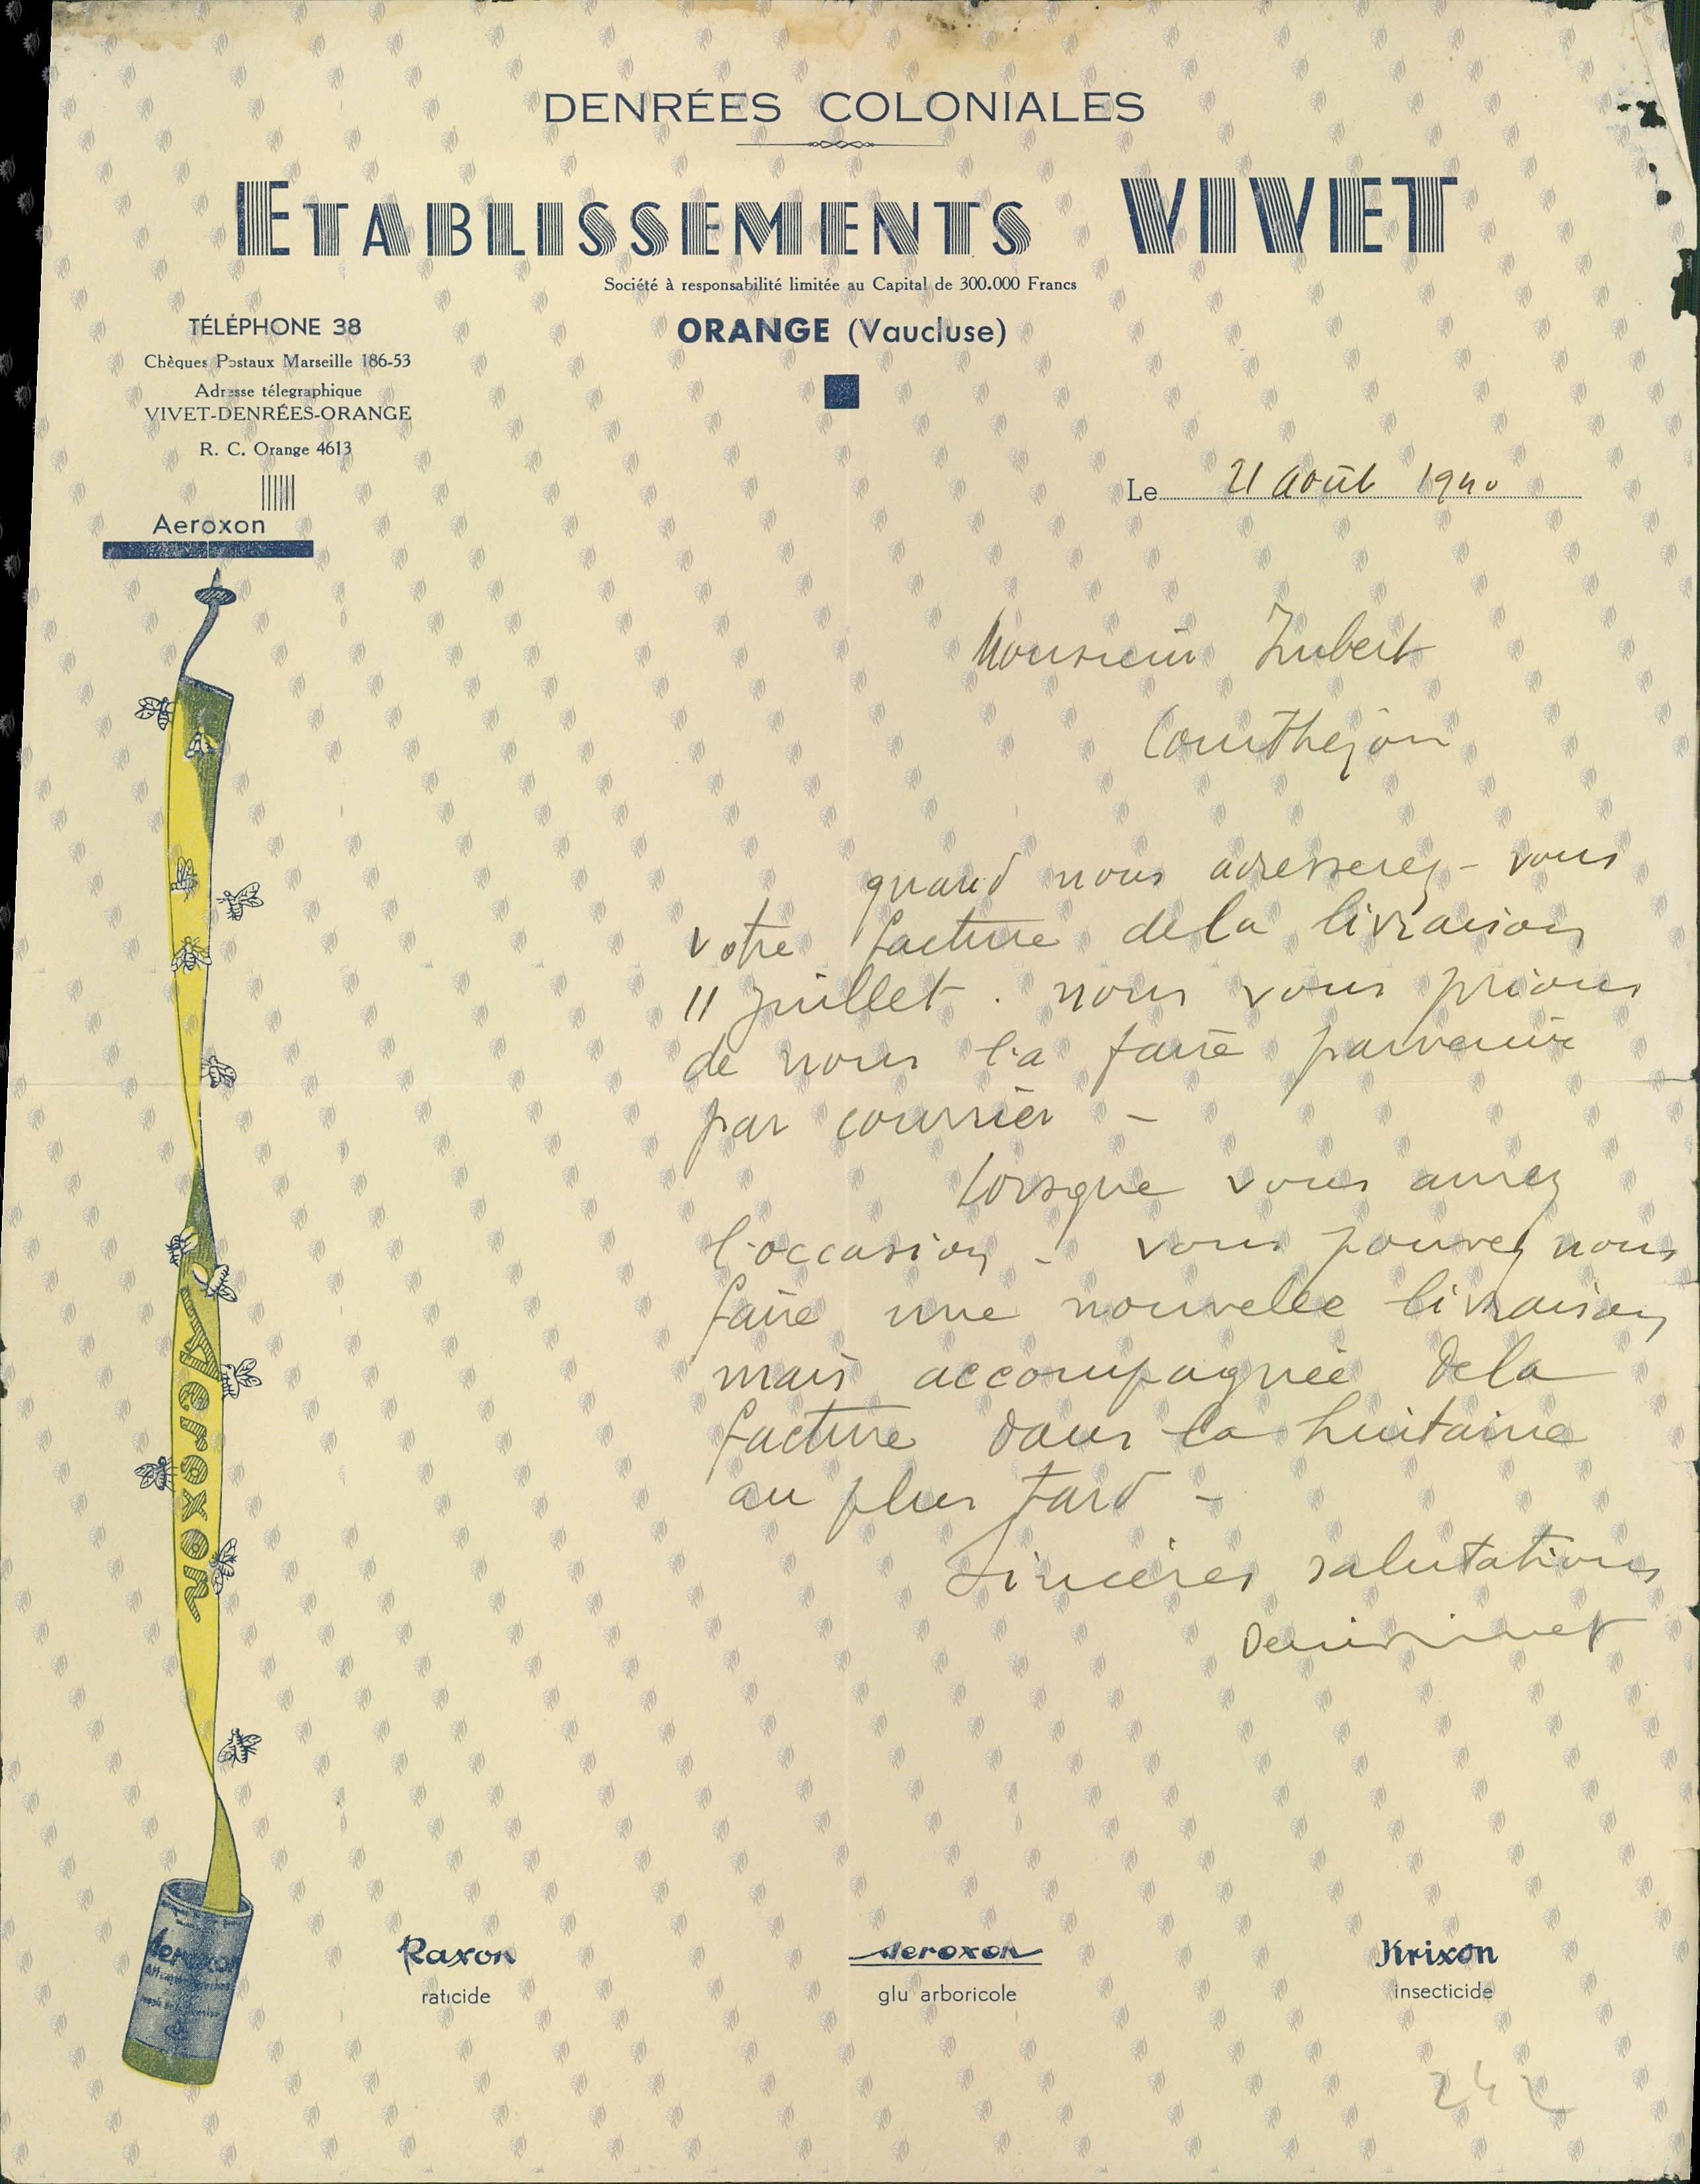 DENRÉES COLONIALES
ETABLISSEMENTS VIVET
Société à responsabilité limitée au Capital de 300.000 Francs
ORANGE (Vaucluse)
TÉLÉPHONE 38
Chèques Postaux Marseille 186-53
Adresse télegraphique
VIVET-DENRÉES-ORANGE
R. C. Orange 4613
Aeroxon
Le 21 août 1940
Monsieur Imbert
Courthezon
quand nous adresserez-vous
votre facture de la livraison
11 juillet. nous vous prions
de nous la faire parvenir
par courrier -
Lorsque vous aurez
l'occasion - vous pouvez nous
faire une nouvelle livraison
mais accompagnée de la
facture dans la huitaine
au plus tard -
Sincères salutations
Aeroxon
Aeroxon
Raxon
raticide
Aeroxon
glu arboricole
Krixon
insecticide
242